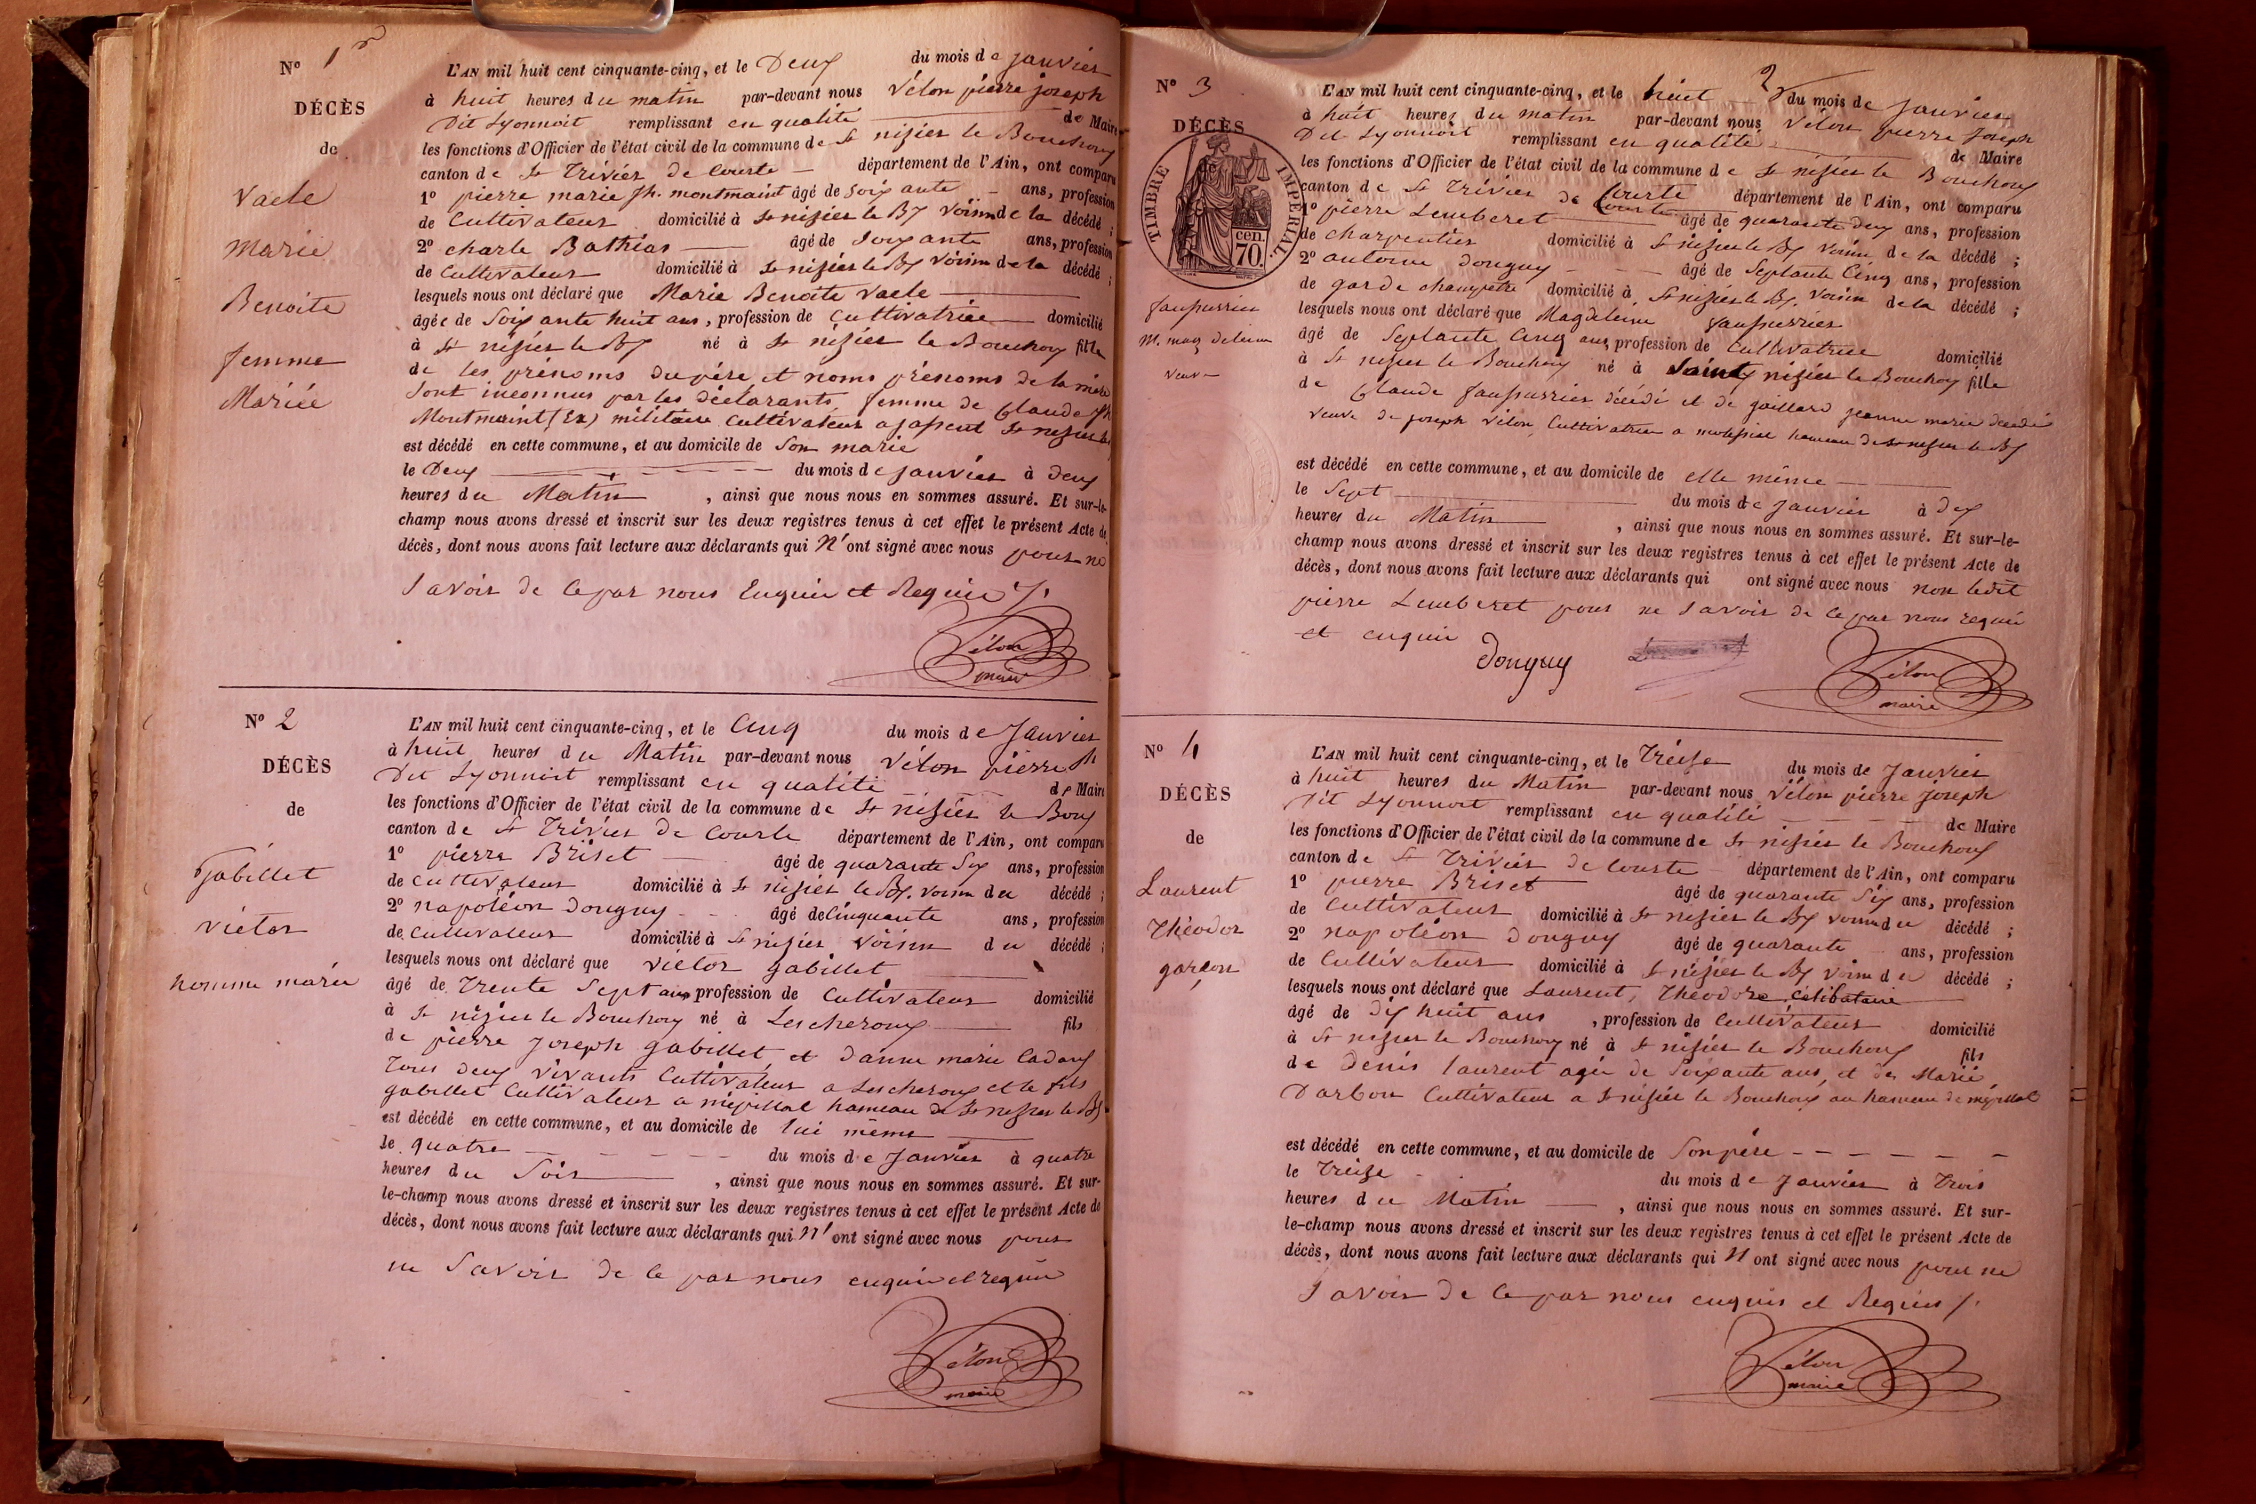 N° 1er
DÉCÈS
de
Vacle
Marie
Benoite
femme
Mariée
L'AN mil huit cent cinquante-cinq, et le Deux du mois de janvier
à huit heures du matin par-devant nous Vélon pierre joseph
Dit Lyonnoit remplissant en qualité de Maire
les fonctions d'Officier de l'état civil de la commune de St nizier le Bouchoux
canton de St Trivier de Courte département de l'Ain, ont comparu
1° pierre marie jh. montmaint âgé de soixante ans, profession
de Cultivateur domicilié à St nizier le Bx voisin de la décédé ;
2° charle Bathias âgé de soixante ans, profession
de Cultivateur domicilié à St nizier le Bx voisin de la décédé ;
lesquels nous ont déclaré que Marie Benoite Vacle
âgée de Soixante huit ans, profession de Cultivatrice domicilié
à St nizier le Bx né à St nizier le Bouchoux fille
de les prénoms du père et noms prénoms de la mère
sont inconnus par les déclarants femme de Claude jh
Montmaint (Ex) militaire Cultivateur a St nizier le
est décédé en cette commune, et au domicile de Son marie
le Deux du mois de janvier à deux
heures du Matin , ainsi que nous nous en sommes assuré. Et sur-le-
champ nous avons dressé et inscrit sur les deux registres tenus à cet effet le présent Acte de
décès, dont nous avons fait lecture aux déclarants qui N' ont signé avec nous pour ne
Savoir de ce par nous Enquie et Requie /.
Vélon
maire
N° 2
DÉCÈS
de
gabillet
victor
homme marie
L'AN mil huit cent cinquante-cinq, et le Cinq du mois de Janvier
à huit heures du Matin par-devant nous Vélon pierre jh
Dit Lyonnoit remplissant en qualité de Maire
les fonctions d'Officier de l'état civil de la commune de St nizier le Boux
canton de St Trivier de Courte département de l'Ain, ont comparu
1° pierre Briset âgé de quarante Six ans, profession
de Cultivateur domicilié à St nizier le Bx. voisin du décédé ;
2° napoléon Donguy âgé de Cinquante ans, profession
de Cultivateur domicilié à St nizier voisin du décédé ;
lesquels nous ont déclaré que victor gabillet
âgé de Trente Sept ans profession de Cultivateur domicilié
à St nizier le Bouchoux né à Lescheroux fils
de pierre joseph gabillet et d'anne marie Cadoux
Tous deux vivants Cultivateur a Lescheroux et le fils
gabillet Cultivateur a mépillat hameau de St nizier le Bx
est décédé en cette commune, et au domicile de lui même
le quatre du mois de Janvier à quatre
heures du Soir , ainsi que nous nous en sommes assuré. Et sur-
le-champ nous avons dressé et inscrit sur les deux registres tenus à cet effet le présent Acte de
décès, dont nous avons fait lecture aux déclarants qui N' ont signé avec nous pour
ne Savoir de ce par nous enquie et requie
Vélon
maire
N° 3
DÉCÈS
TIMBRE IMPÉRIAL.
cen.
70.
faussurier
M. magdeleine
veuve
L'AN mil huit cent cinquante-cinq, et le huit du mois de Janvier
à huit heures du matin par-devant nous Vélon pierre joseph
Dit Lyonnoit remplissant en qualité de Maire
les fonctions d'Officier de l'état civil de la commune de St nizier le Bouchoux
canton de St Trivier de Courte département de l'Ain, ont comparu
1° pierre Lemberet âgé de quarante deux ans, profession
de charpentier domicilié à St nizier le Bx voisin de la décédé ;
2° antoine Donguy âgé de Septante Cinq ans, profession
de garde champêtre domicilié à St nizier le Bx. voisin de la décédé ;
lesquels nous ont déclaré que Magdeleine
âgé de Septante Cinq ans, profession de Cultivatrice domicilié
à St nizier le Bouchoux né à Saint nizier le Bouchoux fille
de Claude décédé et de gaillard jeanne marie décédé
veuve de joseph Vélon, Cultivatrice a hameau de St nizier le Bx
est décédé en cette commune, et au domicile de elle même
le Sept du mois de janvier à dix
heures du Matin , ainsi que nous nous en sommes assuré. Et sur-le-
champ nous avons dressé et inscrit sur les deux registres tenus à cet effet le présent Acte de
décès, dont nous avons fait lecture aux déclarants qui ont signé avec nous non ledit
pierre Lemberet pour ne Savoir de ce par nous requie
et enquie
Donguy
Vélon
maire
N° 4
DÉCÈS
de
Laurent
Théodor
garçon
L'AN mil huit cent cinquante-cinq, et le Treize du mois de Janvier
à huit heures du Matin par-devant nous Vélon pierre joseph
Dit Lyonnoit remplissant en qualité de Maire
les fonctions d'Officier de l'état civil de la commune de St nizier le Bouchoux
canton de St Trivier de Courte département de l'Ain, ont comparu
1° pierre Briset âgé de quarante Six ans, profession
de Cultivateur domicilié à St nizier le Bx voisin du décédé ;
2° napoléon Donguy âgé de quarante ans, profession
de Cultivateur domicilié à St nizier le Bx voisin du décédé ;
lesquels nous ont déclaré que Laurent, Théodore Célibataire
âgé de dix huit ans , profession de Cultivateur domicilié
à St nizier le Bouchoux né à St nizier le Bouchoux fils
de Denis laurent agé de Soixante ans, et de Marie
Darbon Cultivateur a St nizier le Bouchoux au hameau de mépillat
est décédé en cette commune, et au domicile de Son père
le Treize du mois de Janvier à Trois
heures du Matin , ainsi que nous nous en sommes assuré. Et sur-
le-champ nous avons dressé et inscrit sur les deux registres tenus à cet effet le présent Acte de
décès, dont nous avons fait lecture aux déclarants qui N ont signé avec nous pour ne
Savoir de ce par nous enquis et Requis /.
Vélon
maire